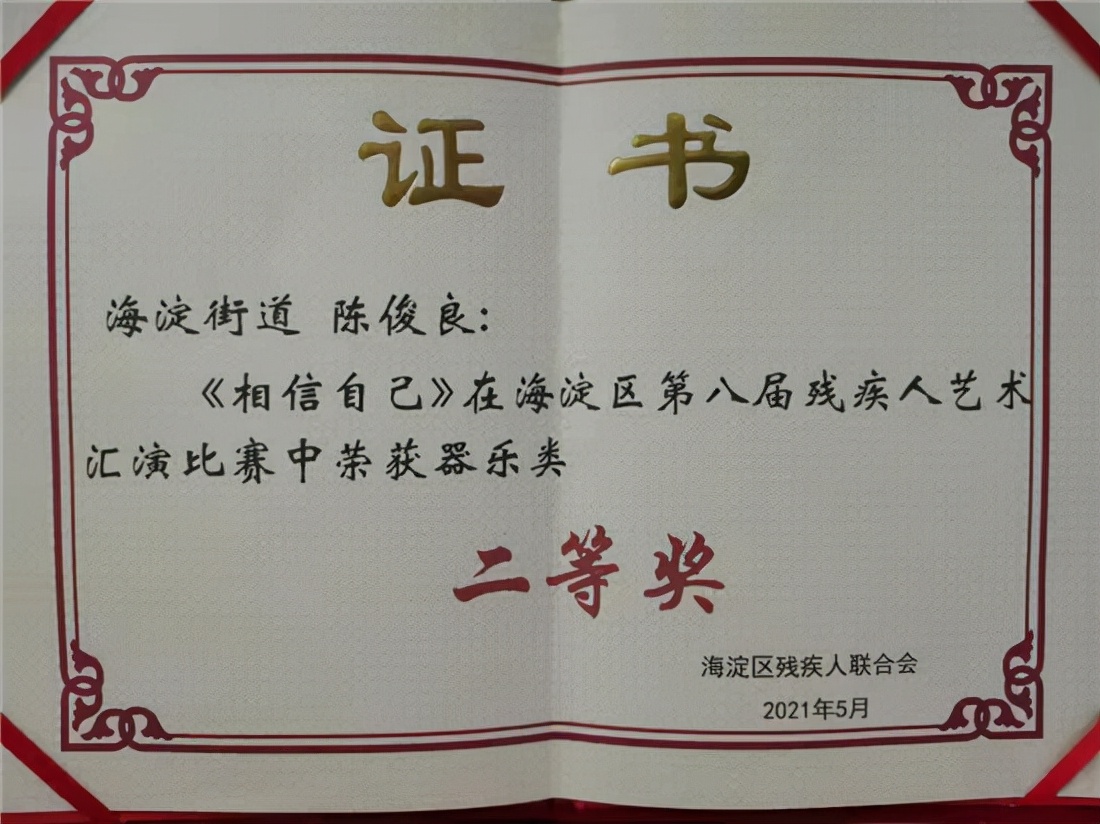 证书
海淀街道 陈俊良:
《相信自己》在海淀区第八届残疾人艺术
汇演比赛中荣获器乐类
二等奖
海淀区残疾人联合会
2021年5月